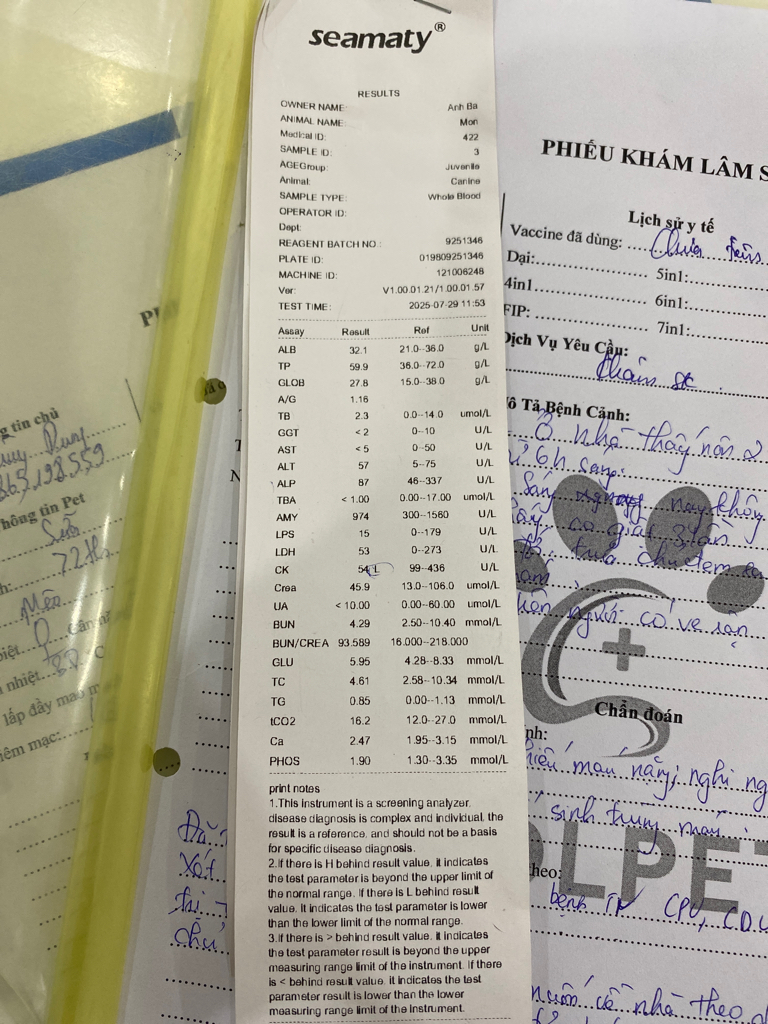 seamaty®
RESULTS
OWNER NAME: Anh Ba
ANIMAL NAME: Mon
Medical ID: 422
SAMPLE ID: 3
AGEGroup: Juvenile
Animal: Canine
SAMPLE TYPE: Whole Blood
OPERATOR ID:
Dept:
REAGENT BATCH NO.: 9251346
PLATE ID: 019809251346
MACHINE ID: 121006248
Ver: V1.00.01.21/1.00.01.57
TEST TIME: 2025-07-29 11:53
Assay Result Ref Unit
ALB 32.1 21.0--36.0 g/L
TP 59.9 36.0--72.0 g/L
GLOB 27.8 15.0--38.0 g/L
A/G 1.16
TB 2.3 0.0--14.0 umol/L
GGT <2 0--10 U/L
AST <5 0--50 U/L
ALT 57 5--75 U/L
ALP 87 46--337 U/L
TBA <1.00 0.00--17.00 umol/L
AMY 974 300--1560 U/L
LPS 15 0--179 U/L
LDH 53 0--273 U/L
CK 54 L 99--436 U/L
Crea 45.9 13.0--106.0 umol/L
UA <10.00 0.00--60.00 umol/L
BUN 4.29 2.50--10.40 mmol/L
BUN/CREA 93.589 16.000--218.000
GLU 5.95 4.28--8.33 mmol/L
TC 4.61 2.58--10.34 mmol/L
TG 0.85 0.00--1.13 mmol/L
tCO2 16.2 12.0--27.0 mmol/L
Ca 2.47 1.95--3.15 mmol/L
PHOS 1.90 1.30--3.35 mmol/L
print notes
1.This instrument is a screening analyzer,
disease diagnosis is complex and individual, the
result is a reference, and should not be a basis
for specific disease diagnosis.
2.If there is H behind result value, it indicates
the test parameter is beyond the upper limit of
the normal range. If there is L behind result
value. It indicates the test parameter is lower
than the lower limit of the normal range.
3.If there is > behind result value. it indicates
the test parameter result is beyond the upper
measuring range limit of the instrument. If there
is < behind result value, it indicates the test
parameter result is lower than the lower
measuring range limit of the instrument.
PHIẾU KHÁM LÂM S
Lịch sử y tế
Vaccine đã dùng: Chưa
Dại: 5in1:
4in1 6in1:
FIP: 7in1:
Dịch Vụ Yêu Cầu:
Khám sk
ô Tả Bệnh Cảnh:
Ở nhà thấy nôn 2
6h sáng.
không
co giật 3 lần
có ve
Chẩn đoán
máu nặng, nghi ng
sinh trùng máu
heo:
bệnh
LPET
về nhà theo
g tin chủ
Duy
hông tin Pet
Sữa
72th
Mèo
nhiệt
lấp đầy mao m
iêm mạc: